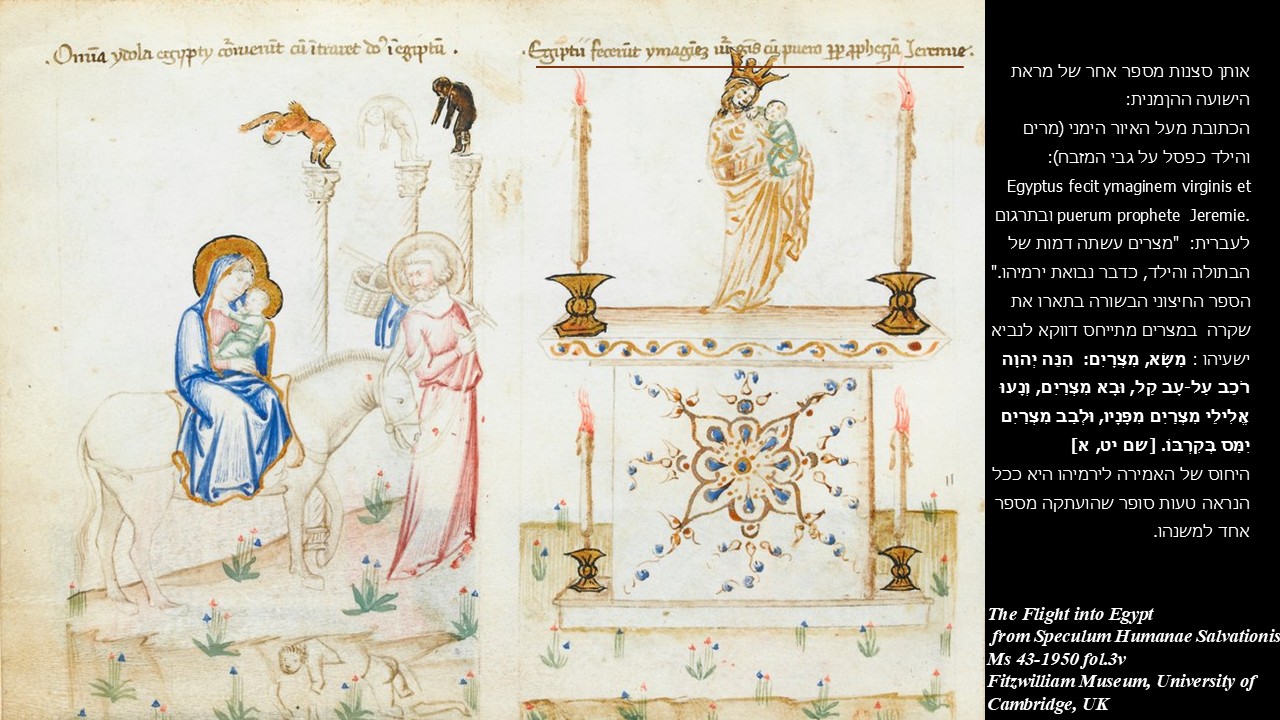 Omīa ydola egypty cōruerūt cū ītraret dō ī egiptū .
Egiptii fecerūt ymaginez cū puero Jeremie.
אותן סצנות מספר אחר של מראת
הישועה ההןמנית:
הכתובת מעל האיור הימני (מרים
והילד כפסל על גבי המזבח):
Egyptus fecit ymaginem virginis et
puerum prophete Jeremie. ובתרגום
לעברית: "מצרים עשתה דמות של
הבתולה והילד, כדבר נבואת ירמיהו."
הספר החיצוני הבשורה בתארו את
שקרה במצרים מתייחס דווקא לנביא
ישעיהו : מַשָּׂא, מִצְרָיִם: הִנֵּה יְהוָה
רֹכֵב עַל-עָב קַל, וּבָא מִצְרַיִם, וְנָעוּ
אֱלִילֵי מִצְרַיִם מִפָּנָיו, וּלְבַב מִצְרַיִם
יִמַּס בְּקִרְבּוֹ. [שם יט, א]
היחוס של האמירה לירמיהו היא ככל
הנראה טעות סופר שהועתקה מספר
אחד למשנהו.
The Flight into Egypt
from Speculum Humanae Salvationis
Ms 43-1950 fol.3v
Fitzwilliam Museum, University of
Cambridge, UK